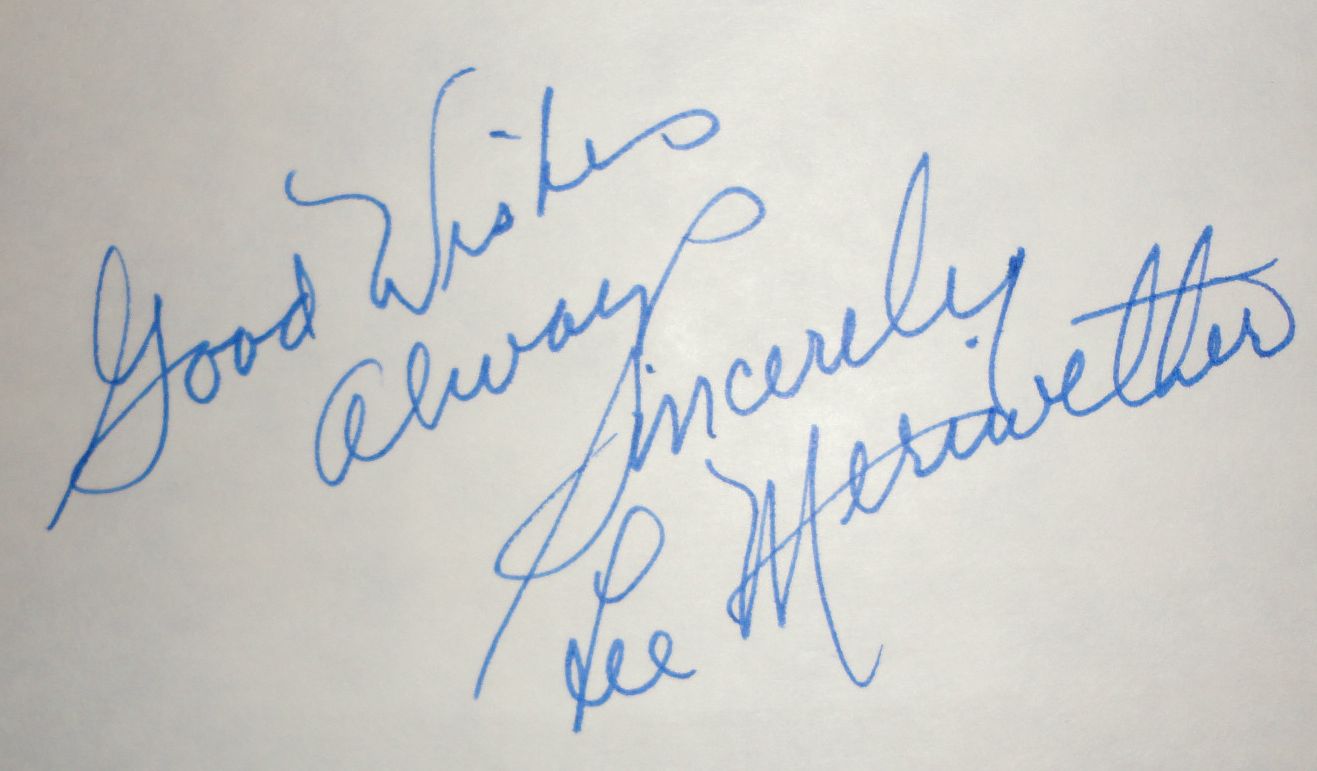 Good Wishes
always
Sincerely
Lee Meriwether